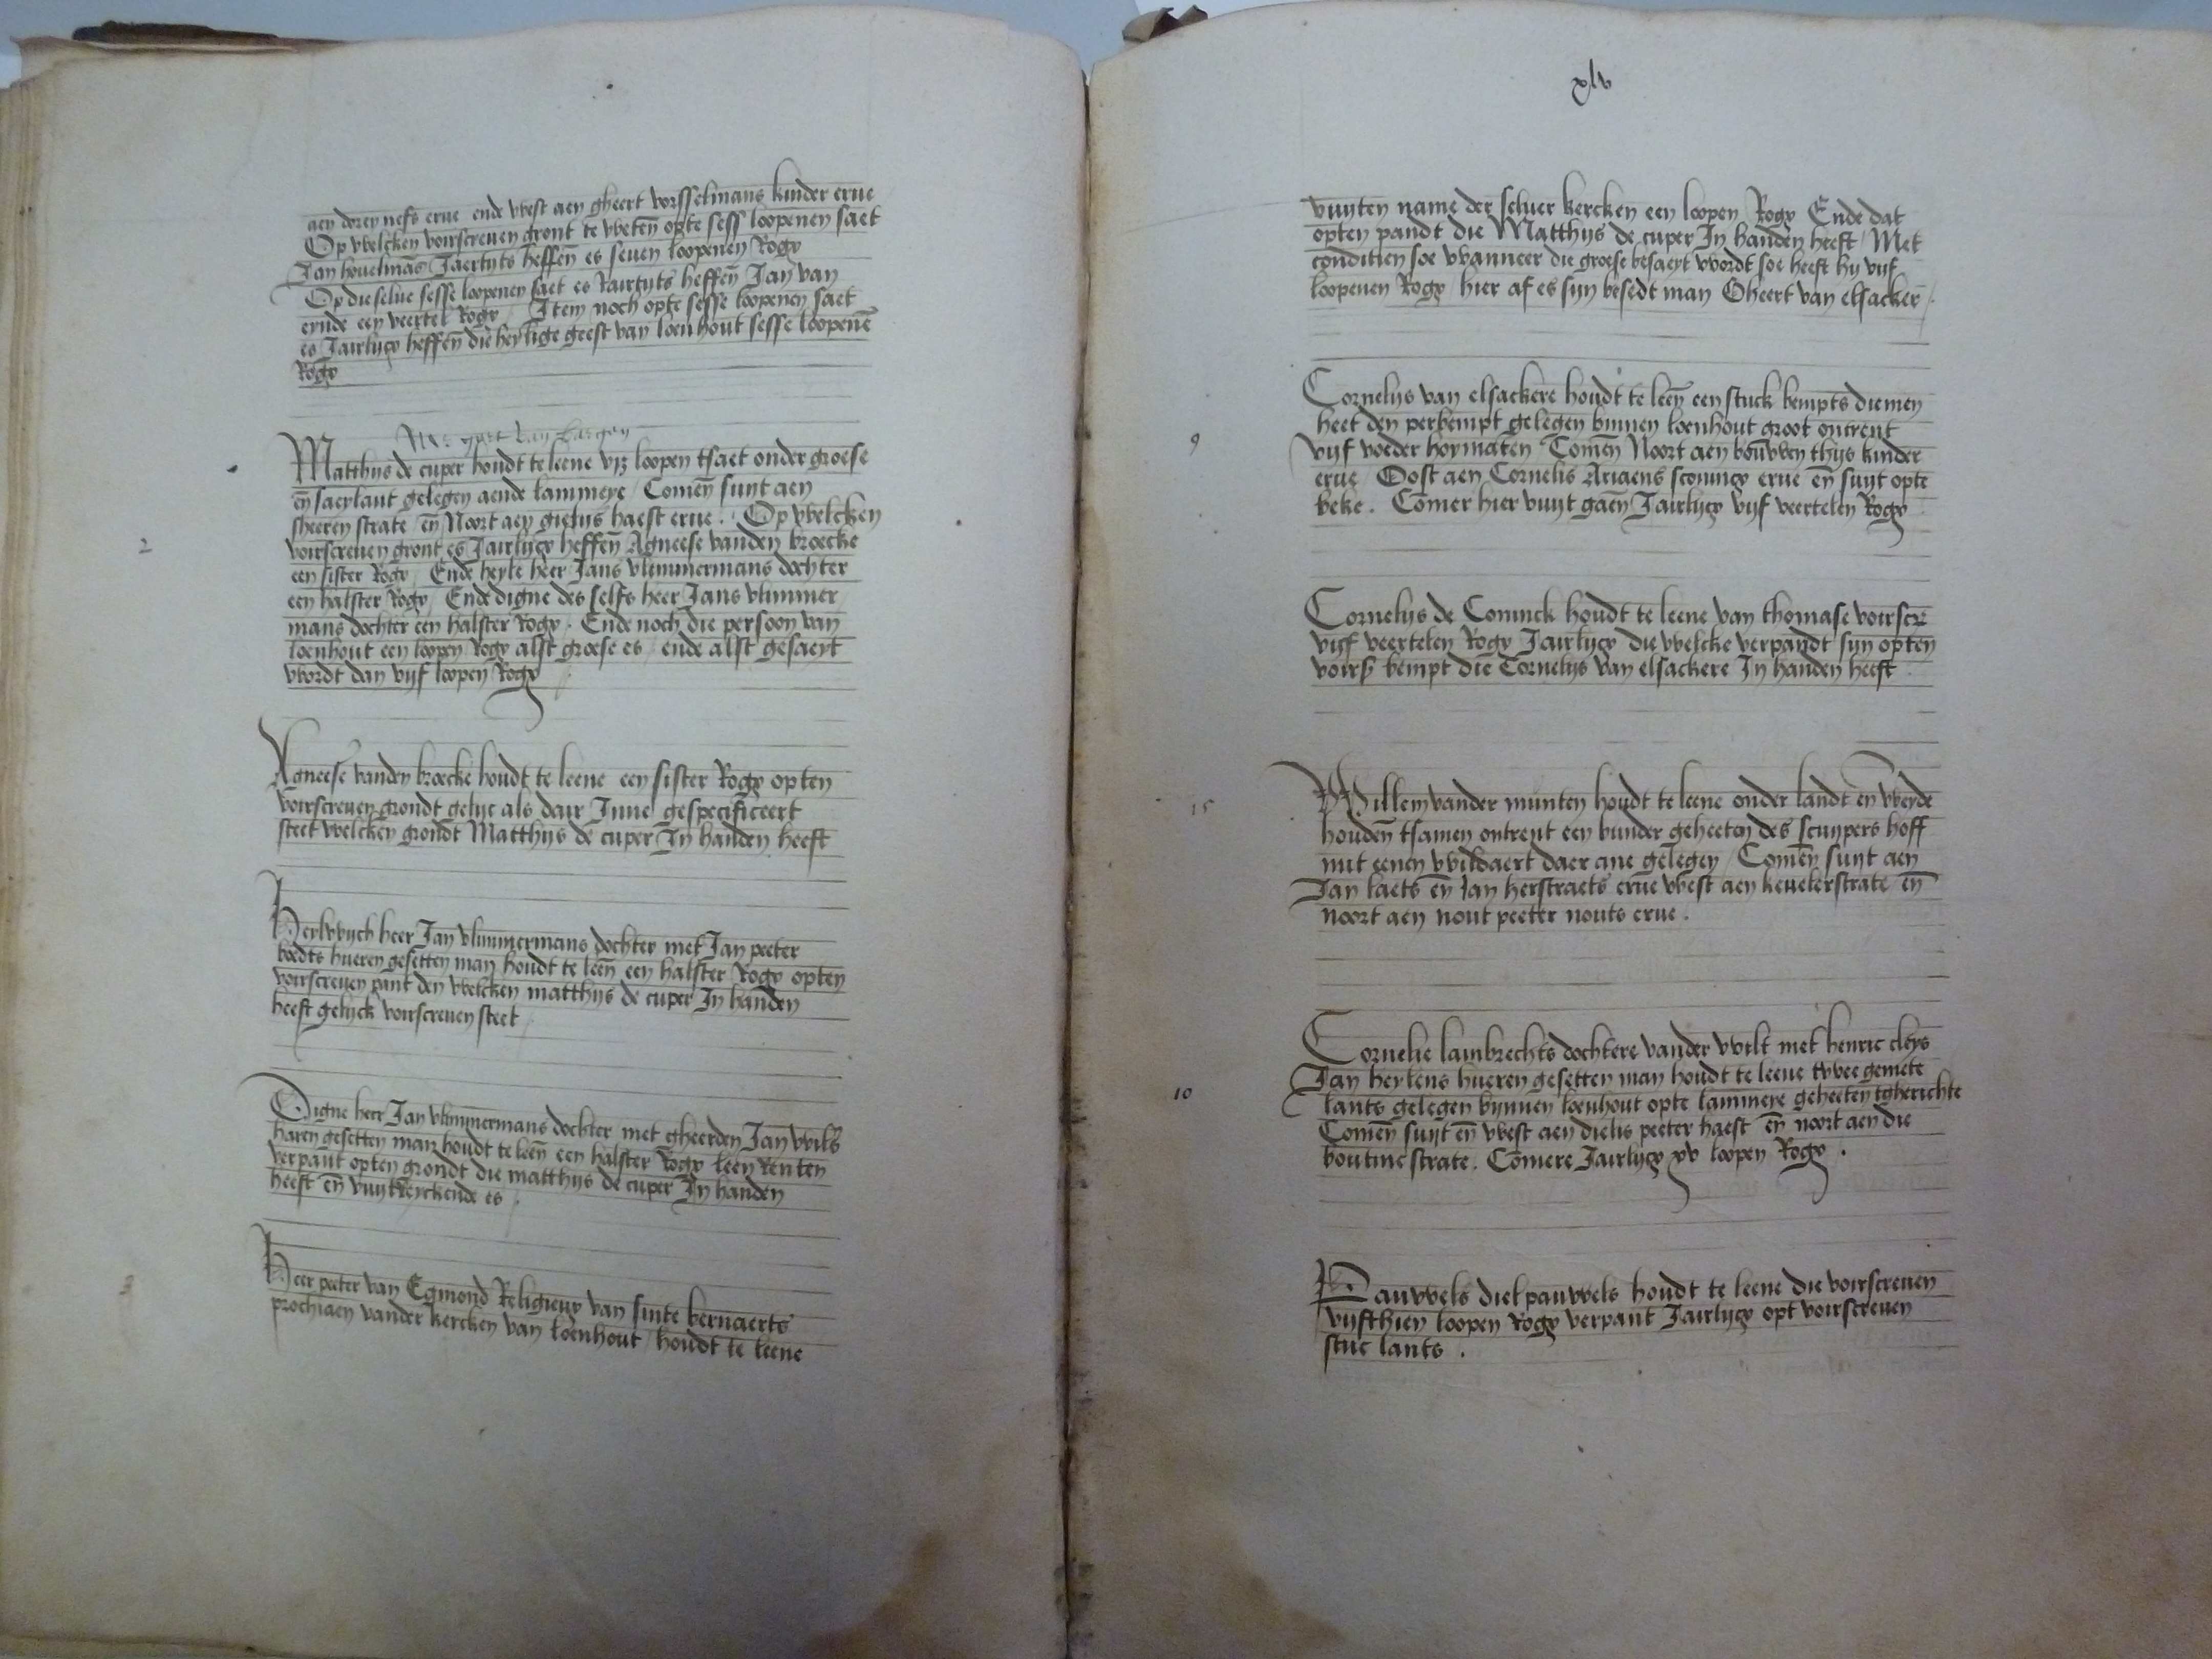 aen doren nefs erue ende west aen gheert vorsselmans kinder erue
Op welcken voirscreuen gront te weten opte sess loopenen saet
Jan houelmās Jaerlycs heffen es seuen loopenen Rogx
Op die selue sesse loopenen saet es Jairlycs heffen Jan van
eynde een veertel Rogx / Item noch opte sesse loopenen saet
es Jairlycx heffen die heylige geest van loenhout sesse loopenē
Rogx
van bergen
Matthijs de cuper houdt te leene loopen tsaet onder groese
eñ saeylant gelegen aende lammeye / Comeñ suyt aen
sheeren strate eñ Noort aen gielijs haest erue . Op welcken
voirscreuen gront es Jairlycx heffen Agneese vanden broecke
een sister Rogx / Ende heyle heer Jans vlimmermans dochter
een halster Rogx / Ende digne des selfs heer Jans vlimmer
mans dochter een halster Rogx . Ende noch die persoon van
loenhout een loopen Rogx alst groese es / ende alst gesaeyt
wordt dan vijf loopen Rogx
2
Agneese vanden broecke houdt te leene een sister Rogx opten
voirscreuen grondt gelijc als dair Inne gespecificeert
steet welcken grondt Matthijs de cuper In handen heeft
Heylwych heer Jan vlimmermans dochter met Jan peeter
bodts hueren gesetten man houdt te leeñ een halster Rogx opten
voirscreuen pant den welcken matthijs de cuper In handen
heeft gelyck voirscreuen steet
Digne heer Jan vlimmermans dochter met gheerden Jan wils
haren gesetten man houdt te leeñ een halster Rogx leen Renten
verpant opten grondt die matthijs de cuper In handen
heeft eñ vuytreyckende es .
Heer peeter van Egmond Religieux van sinte bernaerts
prochiaen vander kercken van loenhout / houdt te leene
3
xlv
vuyten name der seluer kercken een loopen Rogx Ende dat
opten pandt die Matthijs de cuper In handen heeft / Met
conditien soe wanneer die groese besaeyt wordt soe heeft hy vijf
loopenen Rogx hier af es sijn besedt man Gheert van elsacker /
Cornelijs van elsackere houdt te leeñ een stuck bempts diemen
heet den perbempt gelegen binnen loenhout groot ontrent
vijf voeder hoymaten Comeñ Noort aen bouwen thijs kinder
erue / Oost aen Cornelis Ariaens sconincx erue eñ suyt opte
beke . Comer hier vuyt gaeñ Jairlycx vijf veertelen Rogx
9
Cornelys de Coninck houdt te leene van thomase voirscr̄
vijf veertelen Rogx Jairlycx die welcke verpandt sijn opten
voirs̄ bempt die Cornelys van elsackere In handen heeft
Willem vander munten houdt te leene onder landt eñ weyde
houdeñ tsamen ontrent een bunder geheeten des scuypers hoff
mit eenen wildaert daer ane gelegen / Comeñ suyt aen
Jan laets eñ Jan herstraets erue west aen keuelerstrate eñ
noort aen nout peeter nouts erue .
15
Cornelie lambrechts dochtere vander wilt met henric cleys
Jan heylens hueren gesetten man houdt te leene twee gemete
lants gelegen bynnen loenhout opte lammere geheeten tgherichte
Comeñ suyt eñ west aen dielis peeter haest eñ noort aen die
boutine strate . Comere Jairlycx xv loopen Rogx .
10
Pauwels diel pauwels houdt te leene die voirscreuen
vijfthien loopen Rogx verpant Jairlycx opt voirscreuen
stuc lants .